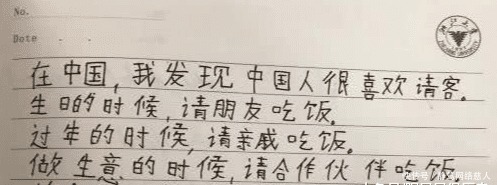 No.
Date
在中国，我发现中国人很喜欢请客。
生日的时候，请朋友吃饭。
过年的时候，请亲戚吃饭。
做生意的时候，请合作伙伴吃饭